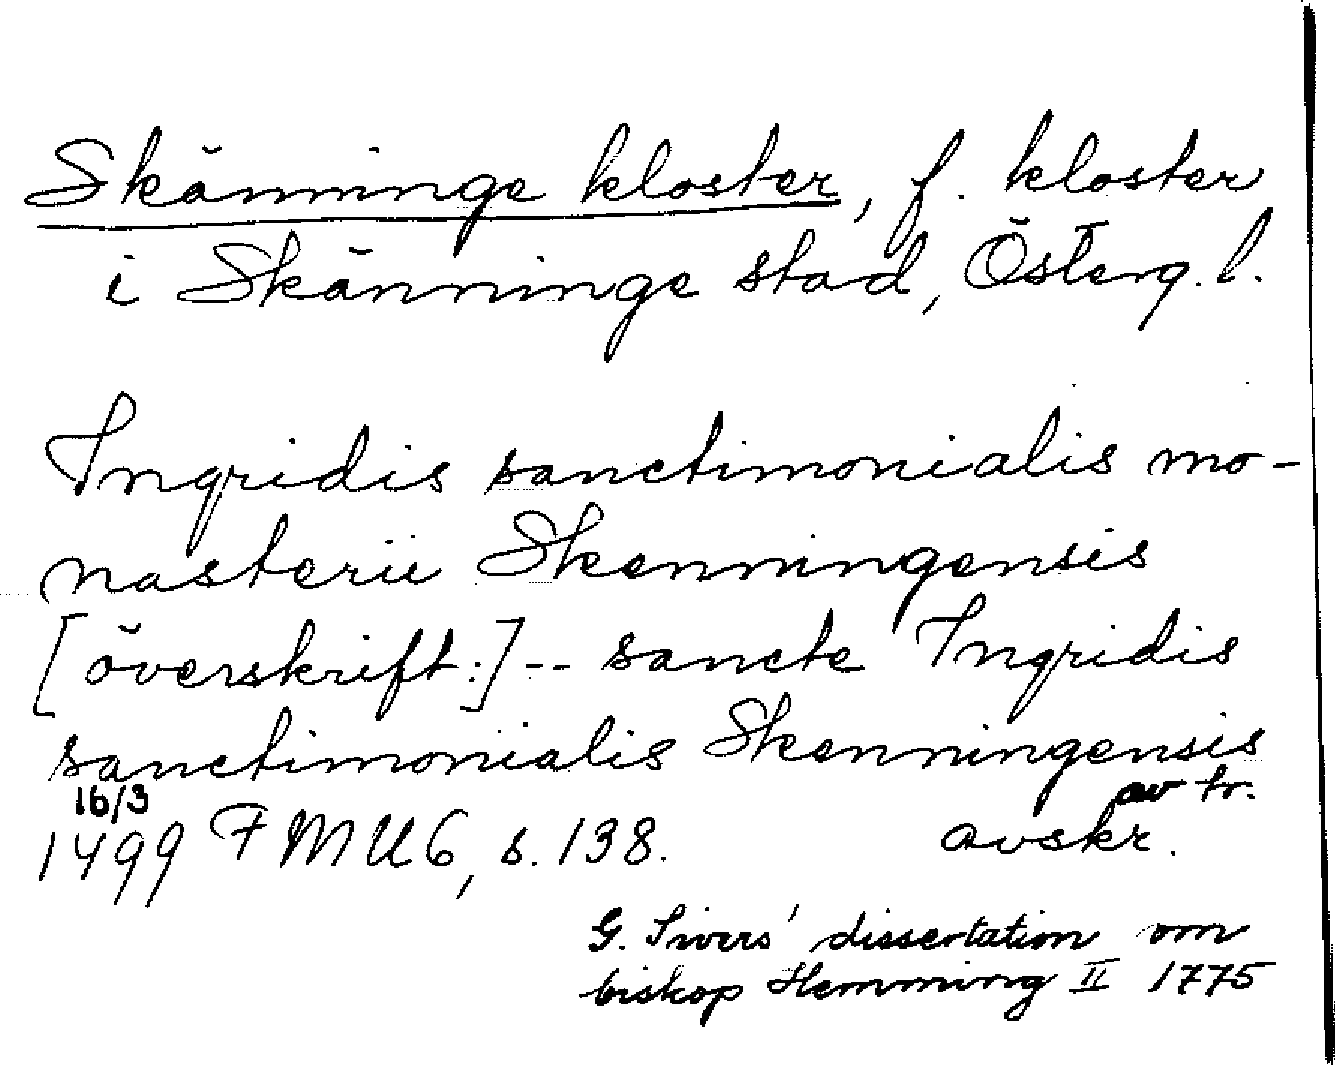 Skänninge kloster, f. kloster
i Skänninge stad, Österg. l.
Ingridis sanctimonialis mo-
nasterii Skenningensis
[överskrift:] -- sancte Ingridis
sanctimonialis Skenningensis
16/3 av tr.
1499 FMU6, s. 138. avskr.
G. Sivers' dissertation om
biskop Hemming II 1775